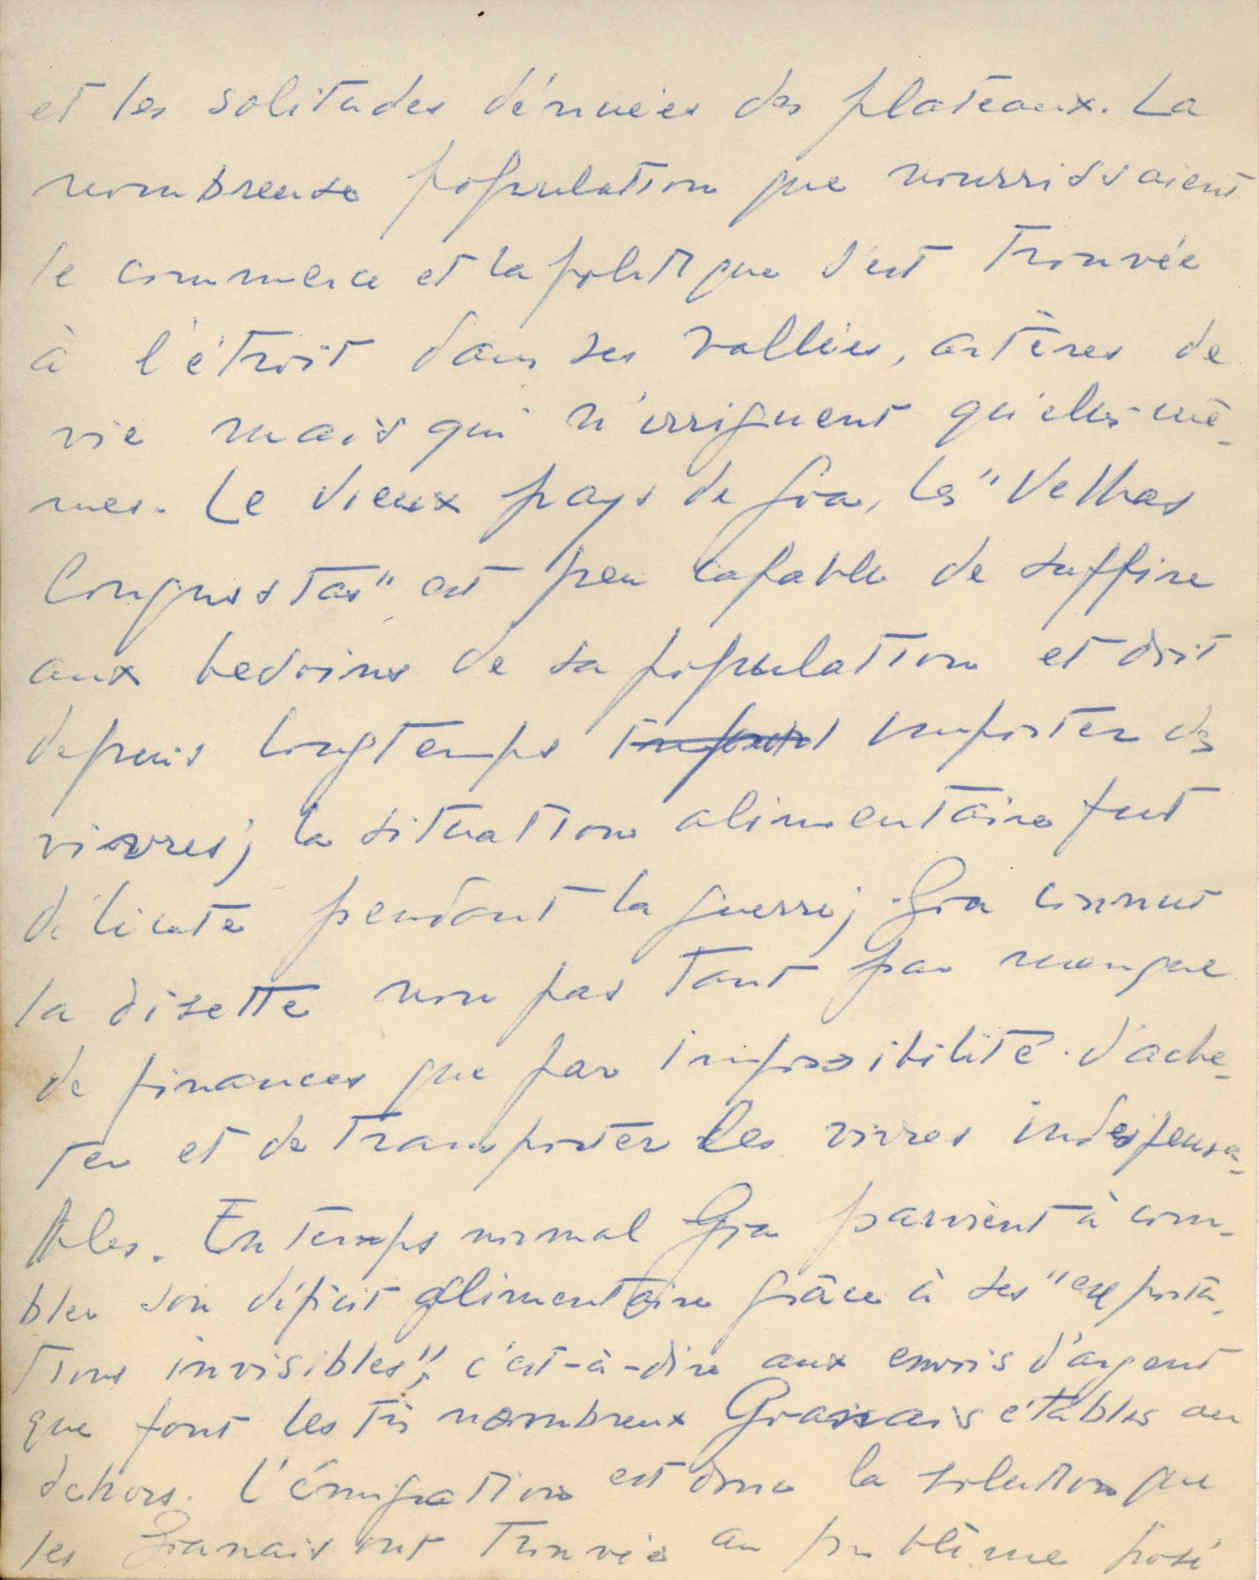 et les solitudes dénuées des plateaux. La
nombreuse population que nourrissaient
le commerce et la politique s'est trouvée
à l'étroit dans ses vallées, artères de
vie mais qui n'irriguent qu'elles-mê-
mes. Le vieux pays de Goa, les "Velhas
Conquistas" est peu capable de suffire
aux besoins de sa population et doit
depuis longtemps importer des
vivres; la situation alimentaire fut
délicate pendant la guerre; Goa connut
la disette non pas tant par manque
de finances que par impossibilité d'ache-
ter et de transporter les vivres indispensa-
bles. En temps normal Goa parvient à com-
bler son déficit alimentaire grâce à ses "exporta-
tions invisibles", c'est-à-dire aux envois d'argent
que font les très nombreux Goanais établis au
dehors. L'émigration est donc la solution que
les Goanais ont trouvée au problème posé